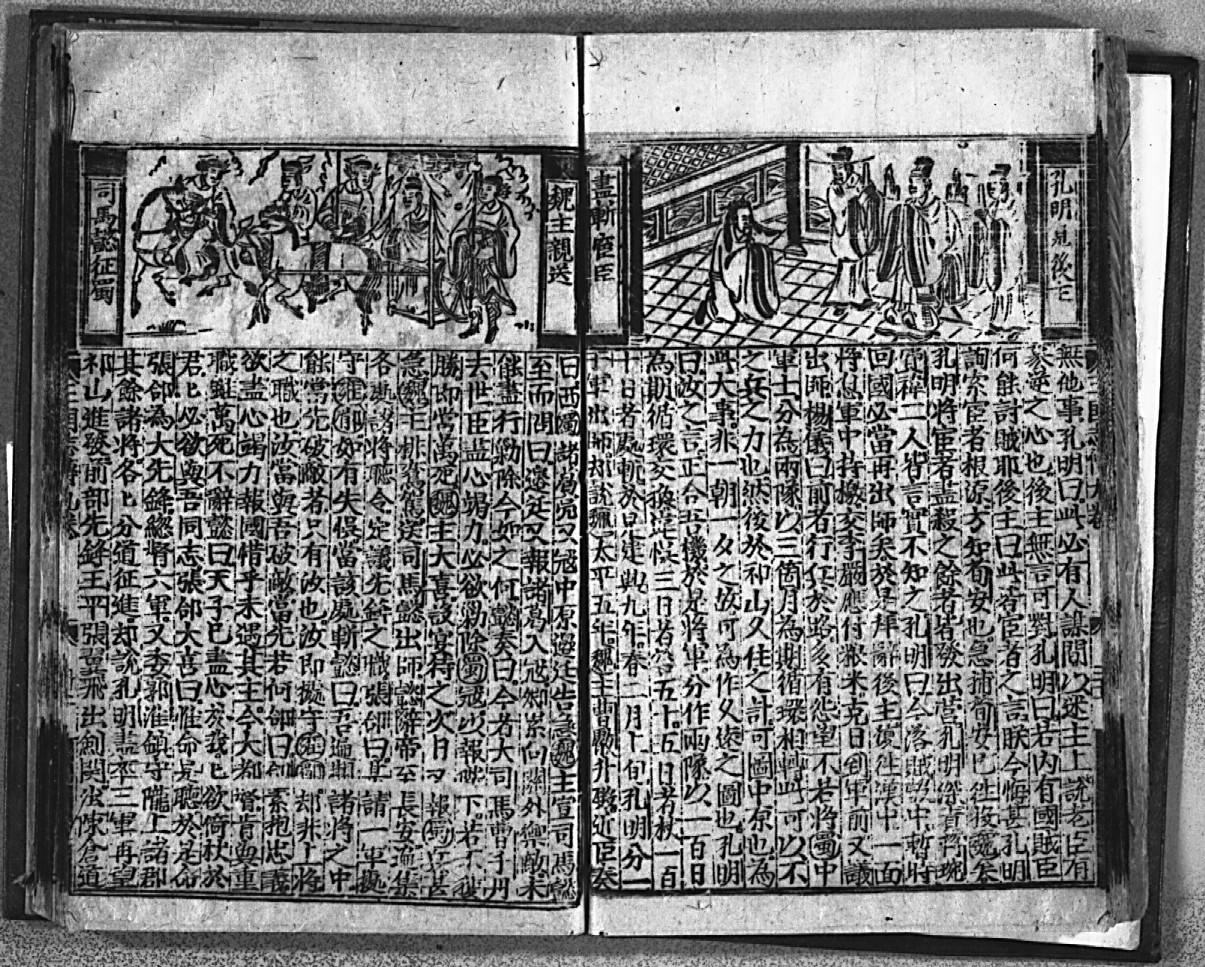 孔明見後主
盡斬宦臣
無他事孔明曰此必有人謀間以迷主上說老臣有
異母之心也後主無言可對孔明曰若内有國賊臣
何能討賊耶後主曰此皆宦者之言朕今悔甚孔明
詢衆宦者根源方知苟安也急捕苟安已往投魏矣
孔明將宦者盡殺之餘者皆發出宮孔明深責蔣琬
費禕二人皆言實不知之孔明曰今落賊計中暫時
回國必當再出師矣於是拜辭後主復往漢中一面
將息軍中持檄交李嚴應付糧米克日到軍前又議
出師楊儀曰前者行軍於路多有怨望不若將蜀中
軍士分為兩隊以三箇月為期循環相轉此可以不
之兵之力也然後於祁山久住之計可圖中原也為
此大事非一朝一夕之故可為作久遠之圖也孔明
曰汝之言正合吾機於是將軍分作兩隊以一百日
為期循環交換違悮三日者笞五十五日者杖一百
十日者處斬於是建興九年春二月上旬孔明分一
軍出師却說魏太平五年魏主曹叡升殿近臣奏
魏主親送
司馬懿征蜀
曰西蜀諸葛亮又冦中原邊廷告急魏主宣司馬懿
至而問曰邊廷又報諸葛入冦卿柰何關外輿敵未
能盡行勦除今如之何懿奏曰今若大司馬曹子丹
去世臣盡心竭力必欲勦除蜀冦以報陛下若不獲
勝即當萬死魏主大喜設宴待之次日又報蜀兵甚
急魏主排鸞駕送司馬懿出師懿辭帝至長安遍集
各處諸將聽令定議先鋒之職張郃曰某請一軍據
守雍郿如有失悞當該處斬懿曰吾遍觀諸將之中
能當先破敵者只有汝也汝即擬守雍郿却非上將
之職也汝當與吾破敵當先若何郃曰某素抱忠義
欲盡心竭力報國惜乎未遇其主今大都督肯與重
職雖萬死不辭懿曰天子已盡心於我已欲倚杖於
君君必欲與吾同志張郃大喜曰惟命是聽於是命
張郃為大先鋒總督六軍又委郭淮鎮守隴上諸郡
其餘諸將各各分道征進却說孔明盡率三軍再望
祁山進發前部先鋒王平張翼飛出劍関沿陳倉道